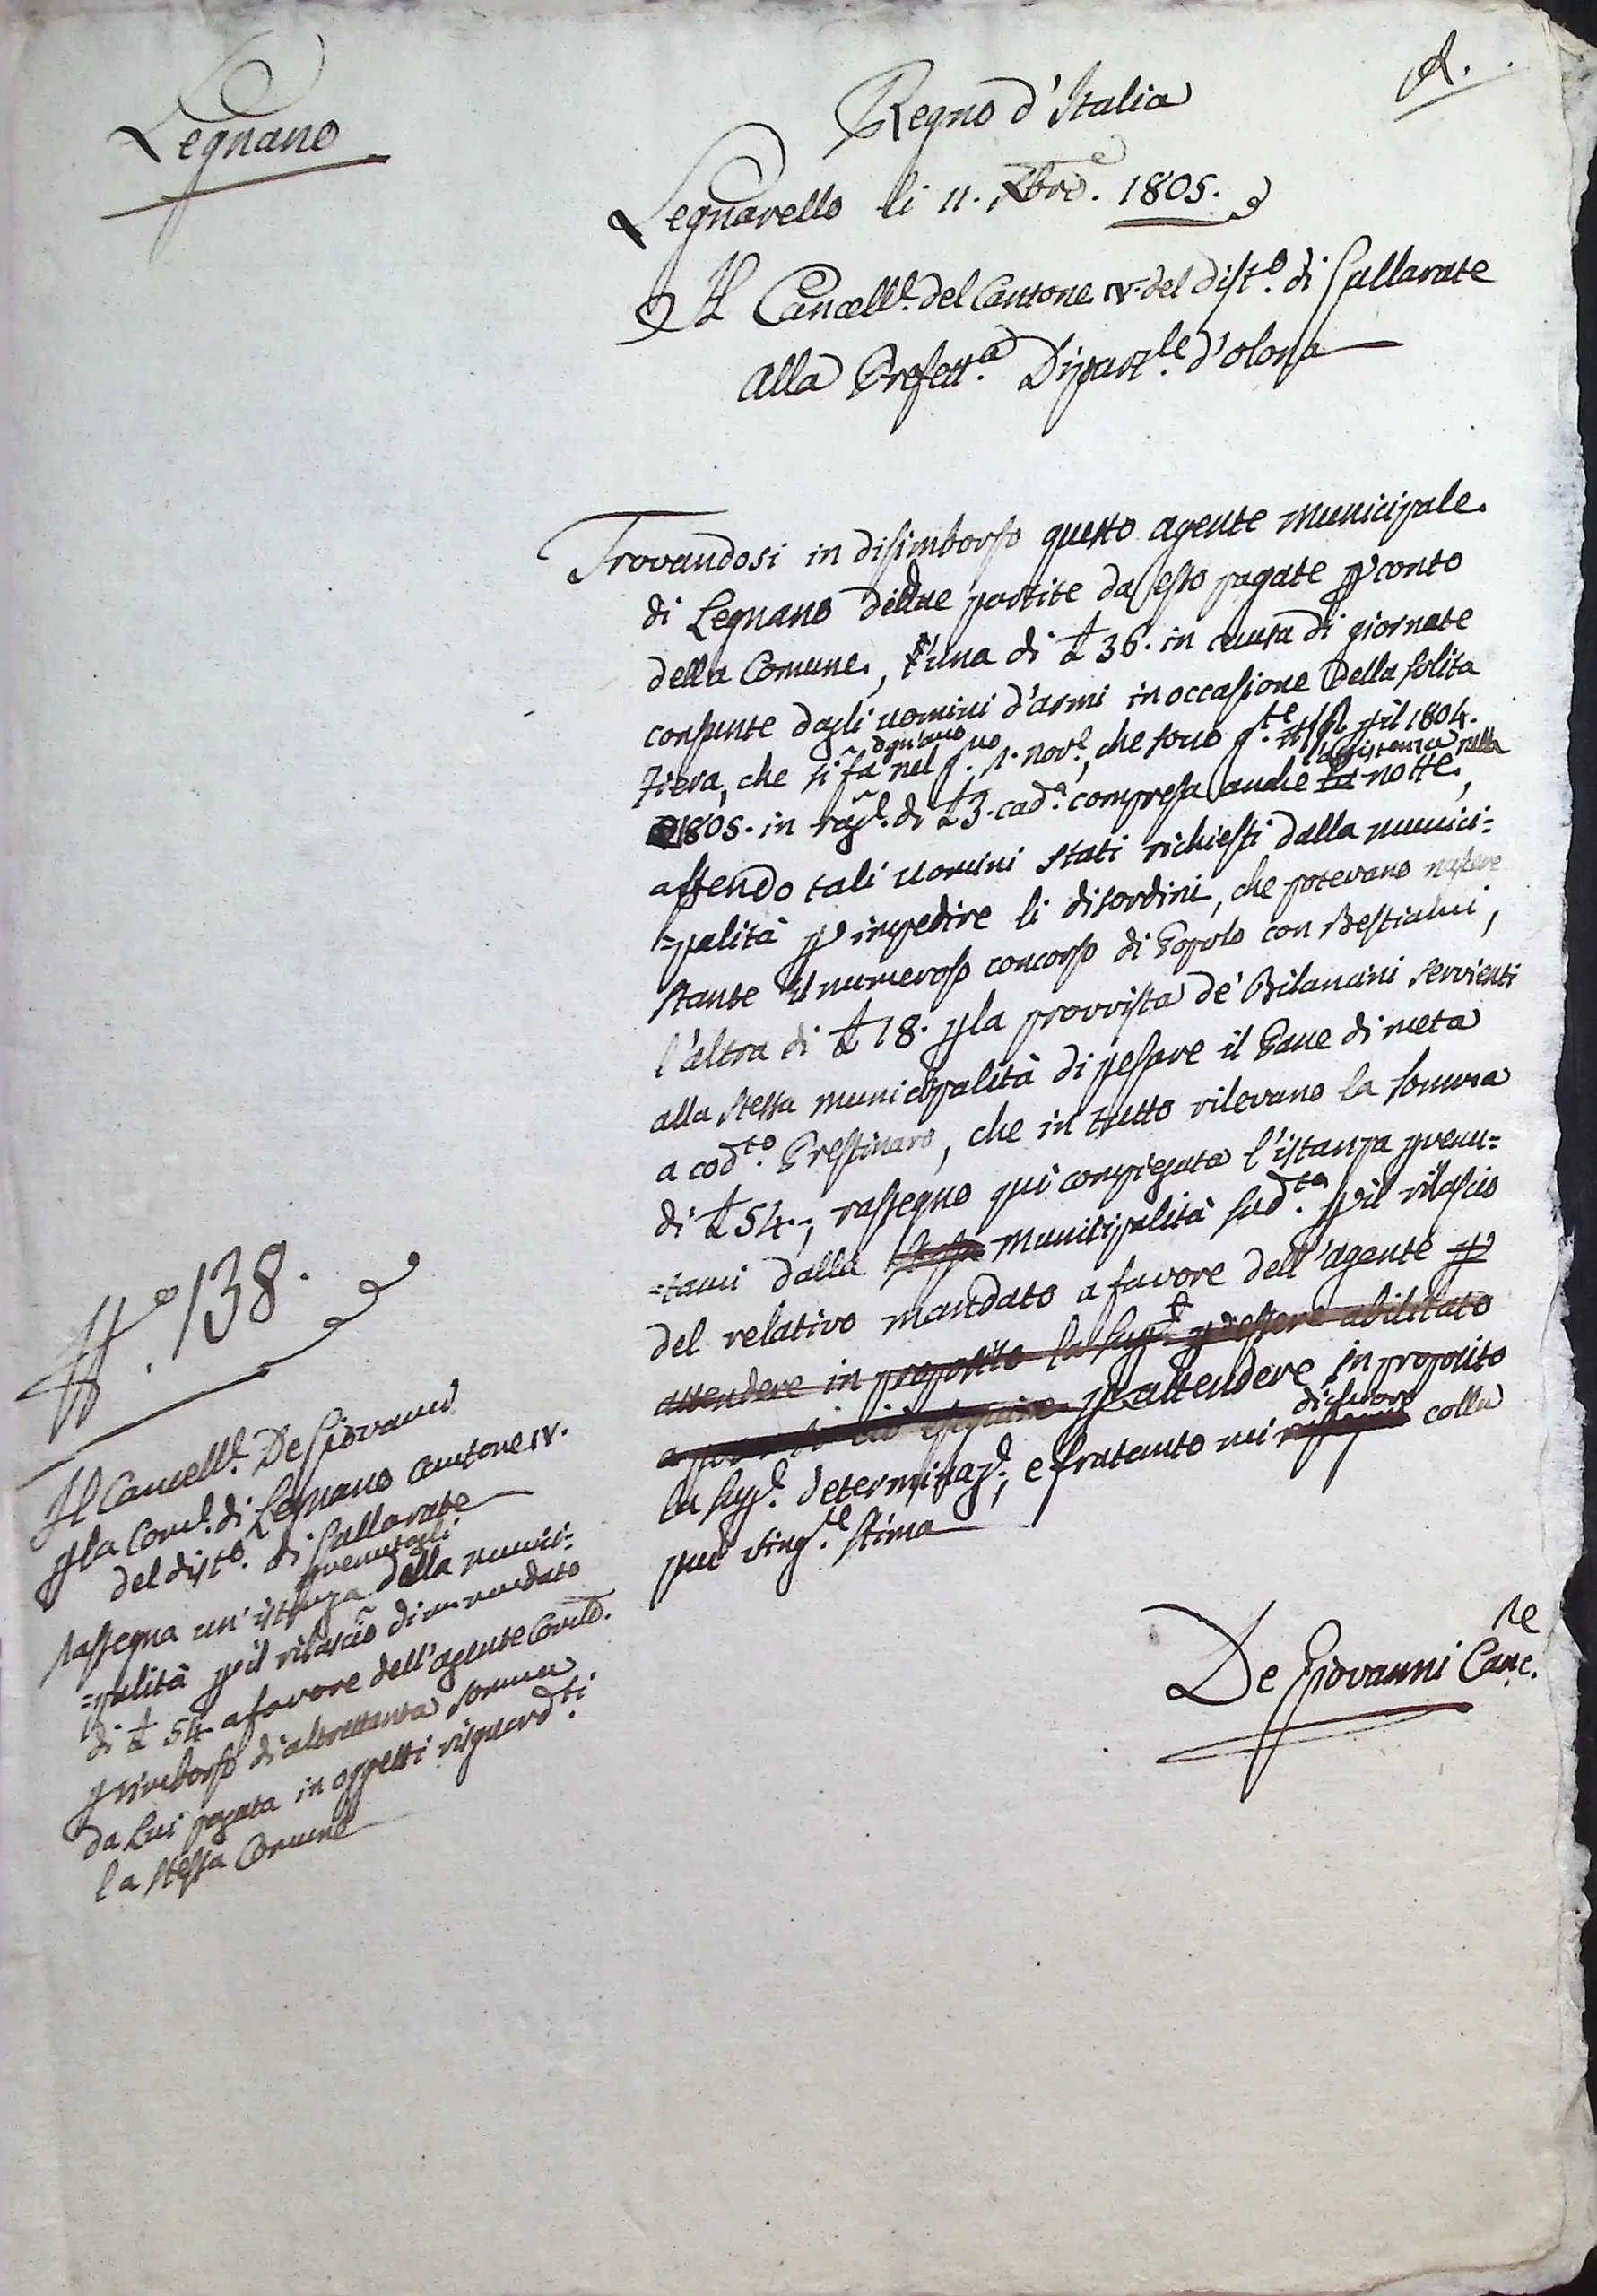 Legnano
A.
Regno d'Italia
Legnarello li 11. Xbre. 1805.
Il Cancell.e del Cantone IV. del dist.o di Gallarate
alla Prefett.a Dipart.le d'olona
Trovandosi in disimborso questo agente municipale
di Legnano di due partite da esso pagate p conto
della Comune, l'una di £ 36. in causa di giornate
consunte dagli uomini d'armi in occasione della solita
Fiera, che si fa ogn'anno nel p.mo 9.nov.e, che sono g.te p il 1804.
1805. in rag.e di £ 3. cad.a compresa anche l'assistenza nella notte,
essendo tali uomini stati richiesti dalla munici=
=palità p impedire li disordini, che potevano nascere
stante il numeroso concorso di Popolo con Bestiami,
l'altra di £ 18. p la provvista de' Bilancini servienti
alla stessa municipalità di pesare il Pane di meta
a cod.to Prestinaro, che in tutto rilevano la somma
di £ 54., rassegno qui compiegata l'istanza pvenu=
=tami dalla stessa Municipalità sud.ta p il rilascio
del relativo mandato a favore dell'agente p
attendere in proposito la sup.e p essere abilitato
p attendere in proposito
la sup.e determinaz.e, e fratanto mi dichiaro colla
più sing.re stima
De Giovanni Canc.re
N.o 138.
Il Cancell.e De Giovanni
p la Com.e di Legnano Cantone IV.
del dist.o di Gallarate
rassegna un'istanza pvenutagli della munici=
=palità p il rilascio di un mandato
di £ 54 a favore dell'agente Comle.
p rimborso di altrettanta somma
da Lui pagata in oggetti risguard.ti
la stessa Comune